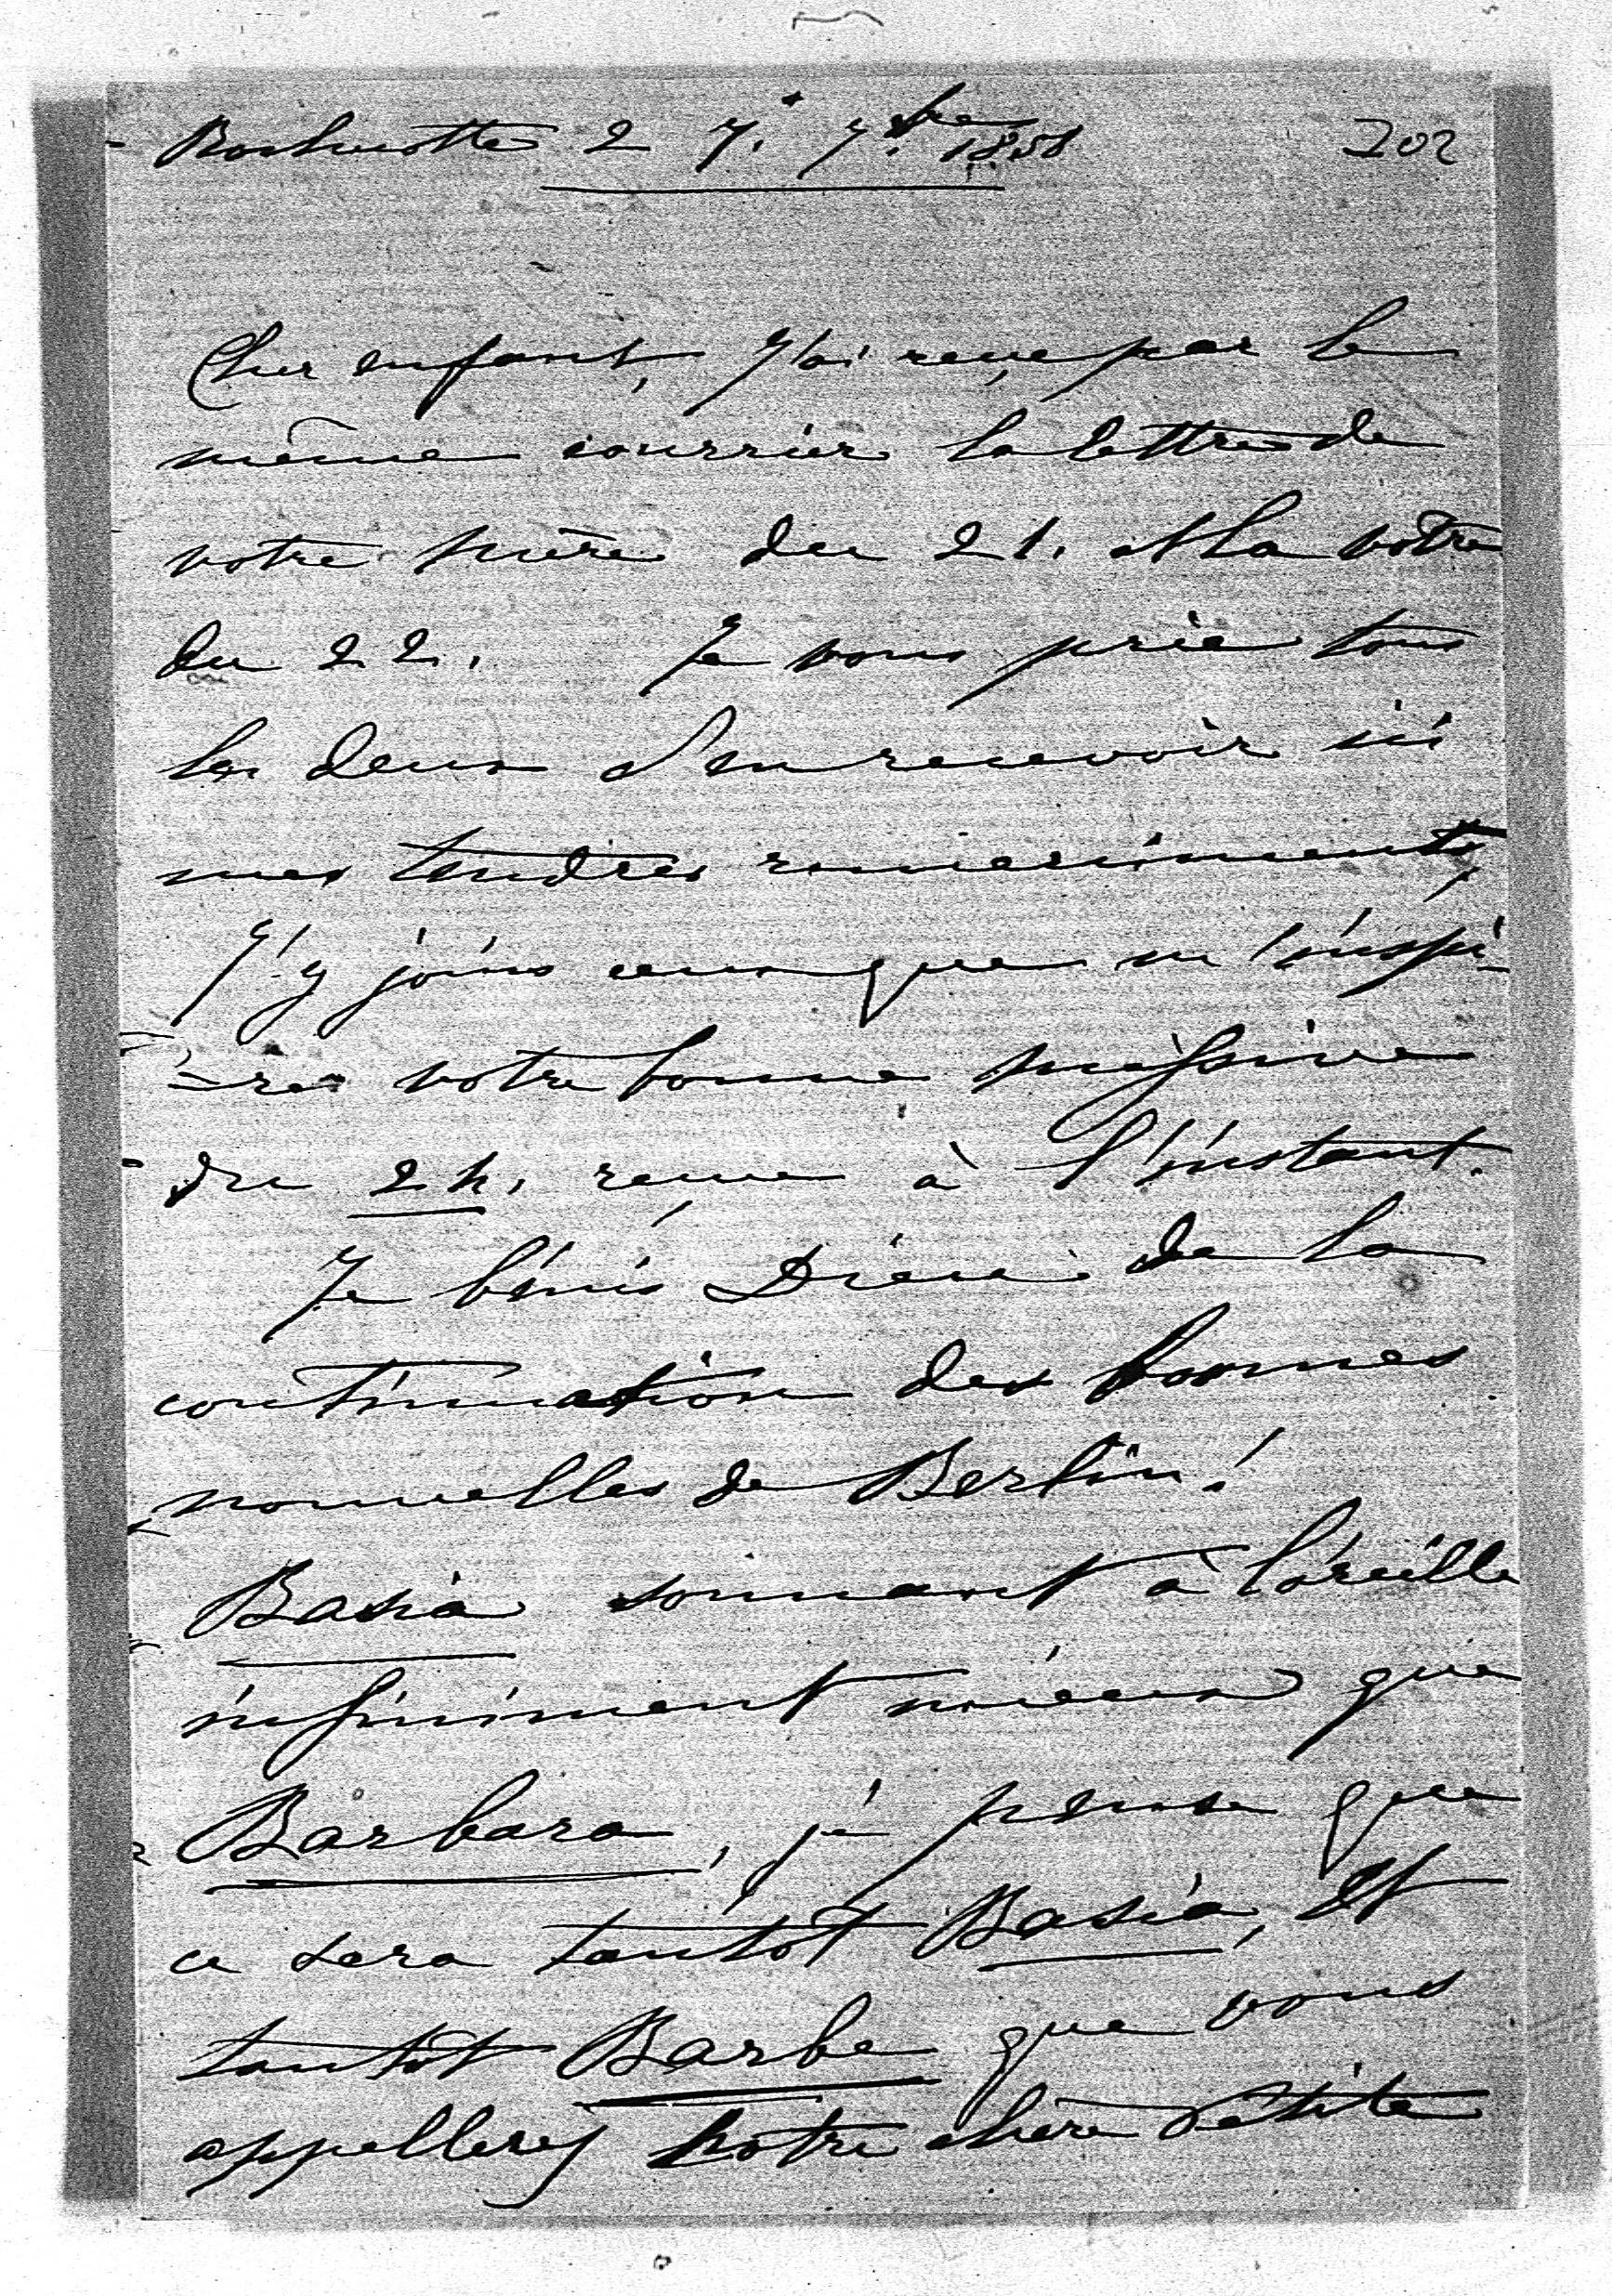 Rochecotte 27. 7.bre 1858 202
Cher enfant, J'ai reçu par le
même courrier la lettre de
votre mère du 21. et la vôtre
du 22. Je vous prie tous
les deux d'en recevoir ici
mes tendres remerciments,
J'y joins ceux que m'inspi-
-re votre bonne missive
du 24. reçue à l'instant.
Je bénis Dieu de la
continuation des bonnes
nouvelles de Berlin!
Basia sonnant à l'oreille
infiniment mieux que
Barbara, je pense que
ce sera tantôt Basia, et
tantôt Barbe que vous
appellerez notre chère petite